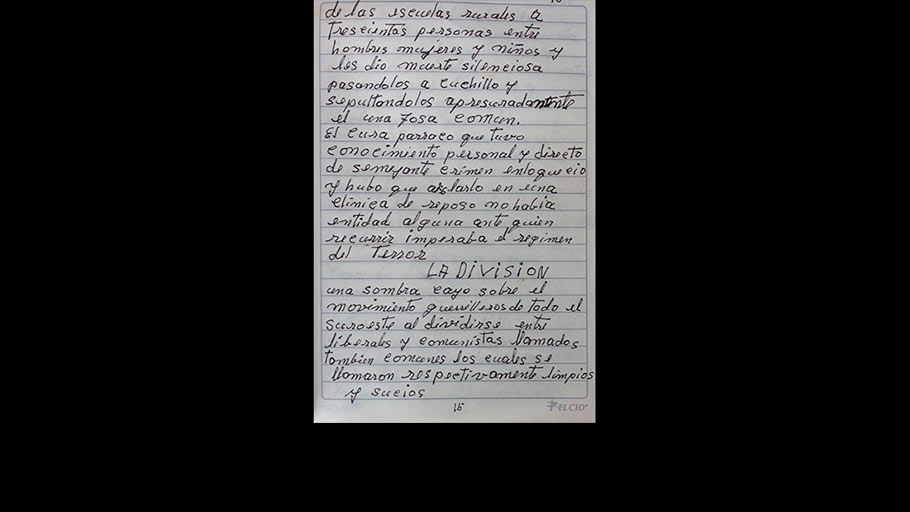 de las escuelas rurales a
trescientas personas entre
hombres mujeres y niños y
les dio muerte silenciosa
pasandolos a cuchillo y
sepultandolos apresuradamente
el una fosa comun.
El cura parroco que tuvo
conocimiento personal y directo
de semejante crimen enloquecio
y hubo que aislarlo en una
clinica de reposo no habia
entidad alguna ante quien
recurrir imperaba el regimen
del Terror
LA DIVISION
una sombra cayo sobre el
movimiento guerrilleros de todo el
suroeste al dividirse entre
liberales y comunistas llamados
tambien comunes los cuales se
llamaron respectivamente limpios
y sucios
15
EL CID